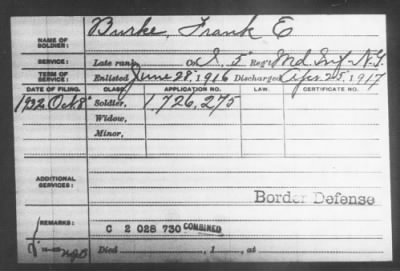 Burke, Frank E
NAME OF SOLDIER:
SERVICE: Late rank, Co I, 5 Reg't Md. Inf. N.G.
TERM OF SERVICE: Enlisted June 28, 1916 Discharged Apr. 25, 1917
DATE OF FILING. CLASS. APPLICATION NO. LAW. CERTIFICATE NO.
1932 Oct 8 Soldier, 1,726,275
Widow,
Minor,
ADDITIONAL SERVICES:
Border Defense
REMARKS: C 2 028 730 COMBINED
Died , 1 , at